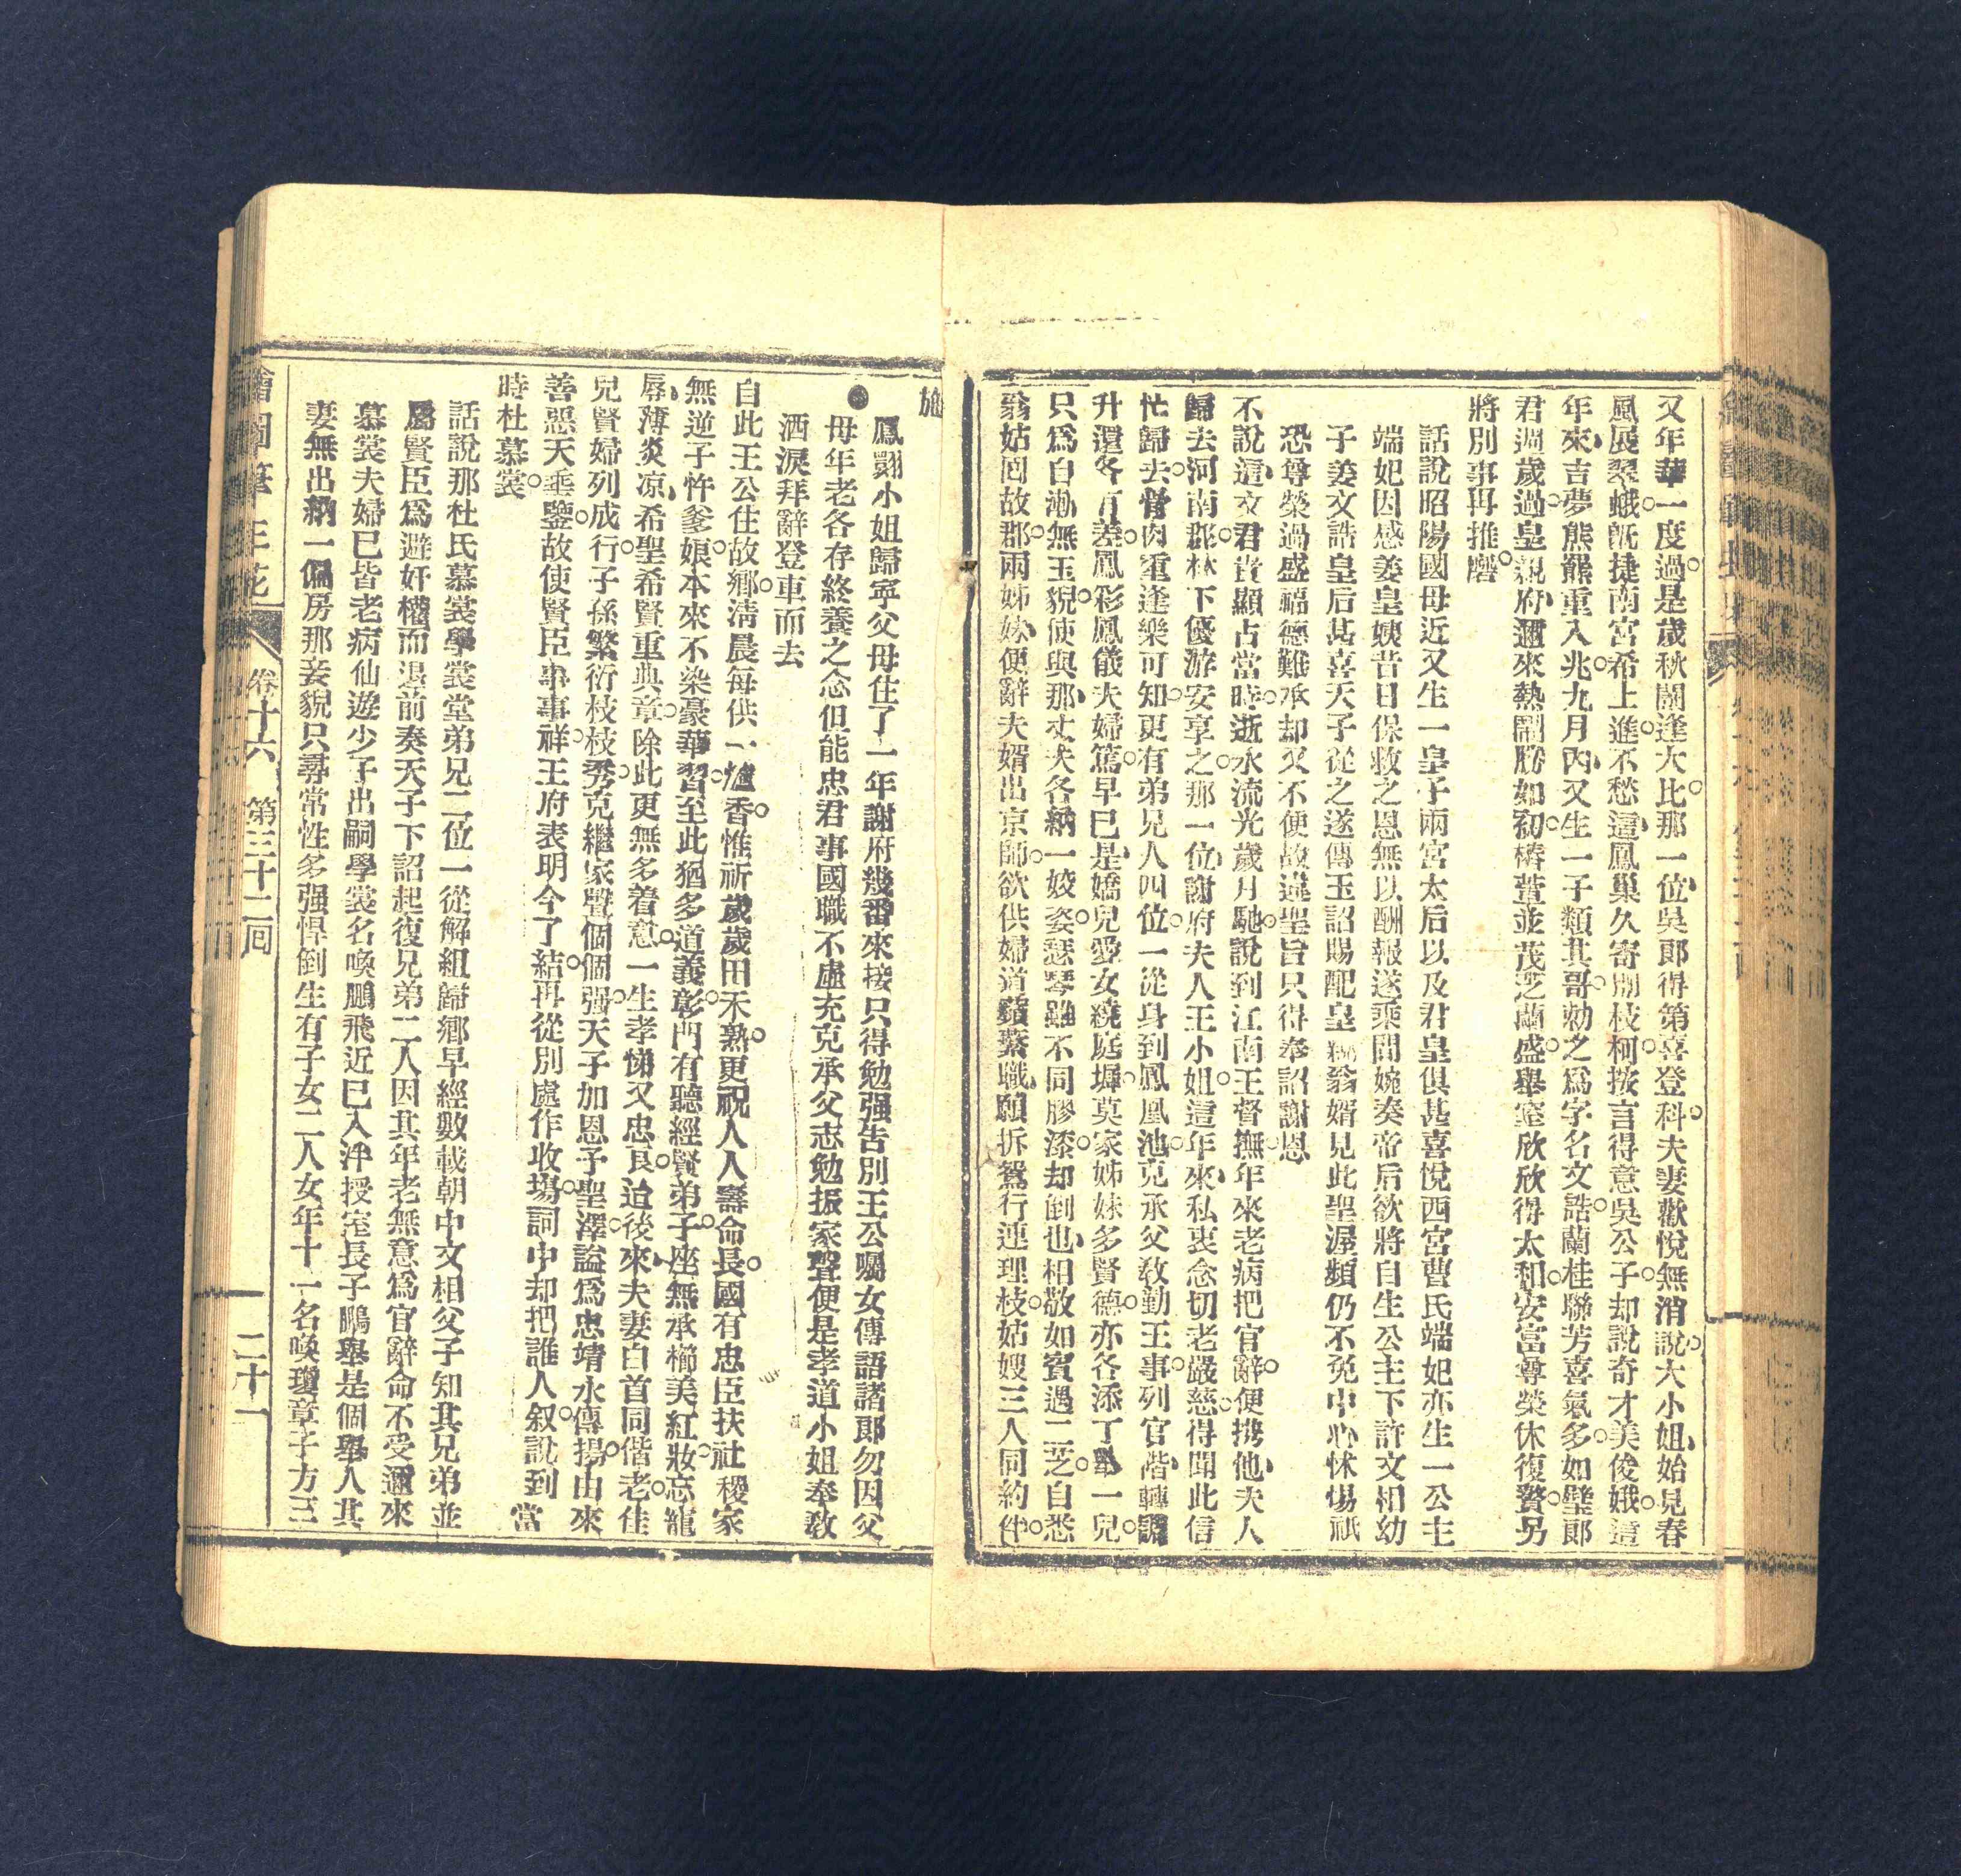 又年華一度過是歲秋闈逢大比那一位吳郎得第喜登科夫妻歡悅無消說大小姐始見春
風展翠蛾旣捷南宮希上進不愁這鳳巢久寄別枝柯按言得意吳公子却說奇才美俊娥這
年來吉夢熊羆重入兆九月內又生一子類其哥勅之爲字名文誥蘭桂聯芳喜氣多如璧郎
君週歲過皇親府邇來熱鬧勝如初椿萱並茂芝蘭盛舉室欣欣得太和安富尊榮休復贅另
將別事再推磨
話說昭陽國母近又生一皇子兩宮太后以及君皇俱甚喜悅西宮曹氏端妃亦生一公主
端妃因感姜皇姨昔日保救之恩無以酬報遂乘間婉奏帝后欲將自生公主下許文相幼
子姜文誥皇后甚喜天子從之遂傳玉詔賜配皇親翁婿見此聖渥頻仍不免中心怵惕祇
恐尊榮過盛福德難承却又不便故違聖旨只得奉詔謝恩
不說這文君貴顯占當時逝水流光歲月馳說到江南王督撫年來老病把官辭便攜他夫人
歸去河南郡林下優游安享之那一位謝府夫人王小姐這年來私衷念切老嚴慈得聞此信
忙歸去骨肉重逢樂可知更有弟兄人四位一從身到鳳凰池克承父敎勤王事列官階轉調
升還各有差鳳彩鳳儀夫婦篤早已是嬌兒愛女繞庭墀莫家姊妹多賢德亦各添丁舉一兒
只爲自漸無玉貌使與那丈夫各納一姣姿瑟琴雖不同膠漆却倒也相敬如賓遇二芝自悉
翁姑回故郡兩姊妹便辭夫婿出京師欲供婦道蘋蘩職願拆鴛行連理枝姑嫂三人同約伴
鳳翾小姐歸寧父母住了一年謝府幾番來接只得勉强告別王公囑女傳語諸郎勿因父
母年老各存終養之念但能忠君事國職不虛充克承父志勉振家聲便是孝道小姐奉敎
洒淚拜辭登車而去
自此王公住故鄉淸晨每供一爐香惟祈歲歲田禾熟更祝人人壽命長國有忠臣扶社稷家
無逆子忤爹娘本來不染豪華習至此猶多道義彰門有聽經賢弟子座無承櫛美紅妝忘寵
辱薄炎凉希聖希賢重典章除此更無多着意一生孝悌又忠良迨後來夫妻白首同偕老佳
兒賢婦列成行子孫繁衍枝枝秀克繼家聲個個强天子加恩予聖澤諡爲忠靖水傳揚由來
善惡天垂鑒故使賢臣事事祥王府表明今了結再從別處作收場詞中却把誰人叙說到當
時杜慕裳
話說那杜氏慕裳學裳堂弟兄二位一從解組歸鄉早經數載朝中文相父子知其兄弟並
屬賢臣爲避奸權而退前奏天子下詔起復兄弟二人因其年老無意爲官辭命不受邇來
慕裳夫婦已皆老病仙遊少子出嗣學裳名喚鵬飛近已入泮授室長子鵬舉是個舉人其
妻無出納一偏房那妾貌只尋常性多强悍倒生有子女二人女年十一名喚瓊章子方三
繪圖筆生花 卷十六 第三十二回 二十一